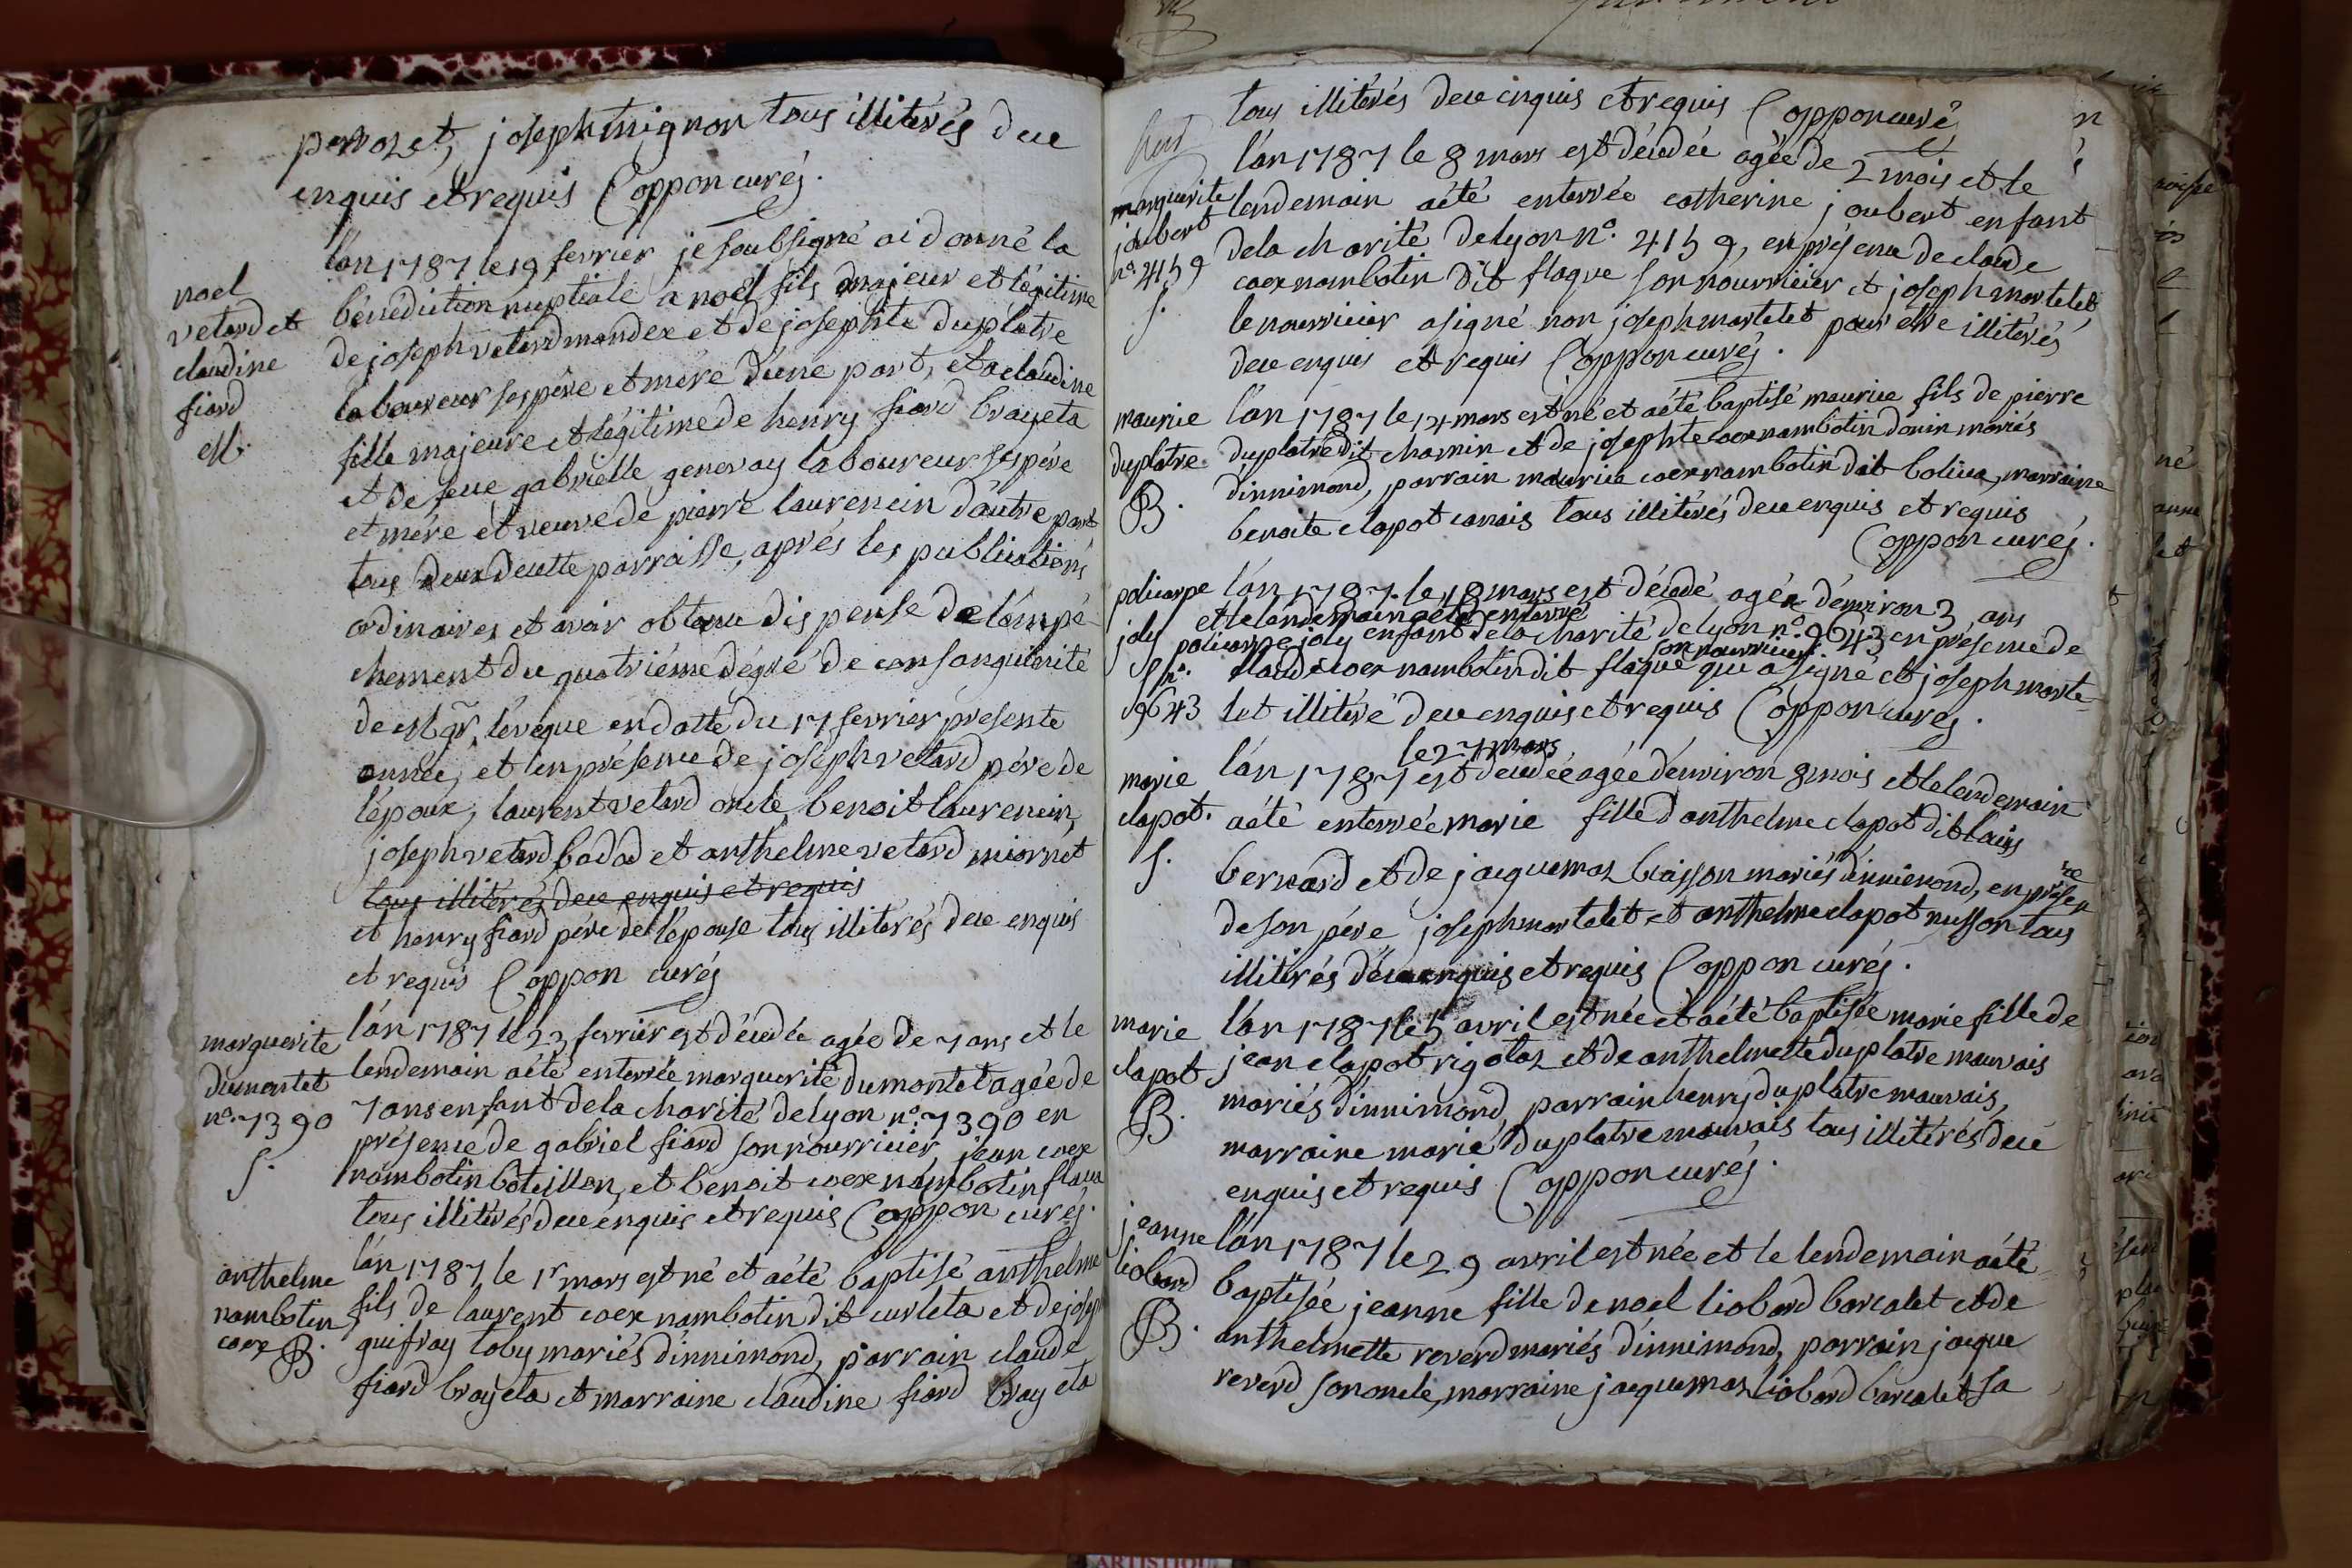 perrozet, joseph mignon tous illitérés deu
enquis et requis Coppon curé.
noel
vetard et
claudine
fiard
M.
l'an 1787 le 19 fevrier je soubsigné ai donné la
bénédiction nuptiale a noël fils majeur et légitime
de joseph vetard mandex et de josephte duplatre
laboureur ses père et mère d'une part, et a claudine
fille majeure et légitime de henry fiard brayeta
et de feue gabrielle genevay laboureur ses père
et mére et veuve de pierre laurencin d'autre part
tous deux de cette parroisse, aprés les publications
ordinaires et avoir obtenu dispense de l'empé-
chement du quatriéme dégré de consanguinité
de Mgr. l'évéque en datte du 17 fevrier presente
année, et en présence de joseph vetard père de
l'époux, laurent vetard oncle, benoit laurencin,
joseph vetard badad et anthelme vetard miornet
tous illitérés deu enquis et requis
et henry fiard père de l'épouse tous illitérés deu enquis
et requis Coppon curé
marguerite
dumontet
n°. 7390
S.
l'an 1787 le 23 fevrier est décédée agée de 7 ans et le
lendemain a été enterrée marguerite dumontet agée de
7 ans enfant de la charité de lyon n°. 7390 en
présence de gabriel fiard son nourricier, jean coex
nambotin boteillon, et benoit coex nambotin flaca
tous illitérés deu enquis et requis Coppon curé.
anthelme
nambotin
coex B.
l'an 1787 le 1r mars est né et a été baptisé anthelme
fils de laurent coex nambotin dit curleta et de joseph
guifray toby mariés d'innimond, parrain claude
fiard brayeta et marraine claudine fiard brayeta
tous illitérés deu enquis et requis Coppon curé
marguerite
joubert
n°. 4159
S.
l'an 1787 le 8 mars est décédée agée de 2 mois et le
lendemain a été enterrée catherine joubert enfant
de la charité de lyon n°. 4159, en présence de claude
coex nambotin dit flaque son nourricier et joseph martelet
le nourricier a signé non joseph martelet pour etre illitérés
deu enquis et requis Coppon curé.
maurice
duplatre
B.
l'an 1787 le 14 mars est né et a été baptisé maurice fils de pierre
duplatre dit chamin et de josephte coex nambotin donin mariés
d'innimond, parrain maurice coex nambotin dit bolica, marraine
benoite clapot canais tous illitérés deu enquis et requis
Coppon curé.
policarpe
joly
S. n°.
9643
l'an 1787 le 18 mars est décédé agé d'environ 3 ans
et le lendemain a été enterré
policarpe joly enfant de la charité de lyon n°. 9643 en présence de
son nourricier
claude coex nambotin dit flaque qui a signé et joseph marte-
let illitéré deu enquis et requis Coppon curé.
marie
clapot.
S.
le 27 mars
l'an 1787 est décédée agée d'environ 8 mois et le lendemain
a été enterrée marie fille d'anthelme clapot dit lais
bernard et de jacquemaz brisson mariés d'innimond, en présen
ce
de son père joseph martelet et anthelme clapot russon tous
illitérés deu enquis et requis Coppon curé.
marie
clapot
B.
l'an 1787 le 5 avril est née et a été baptisée marie fille de
jean clapot rigolaz et de anthelmette duplatre mauvais
mariés d'innimond, parrain henry duplatre mauvais,
marraine marie duplatre mauvais tous illitérés deu
enquis et requis Coppon curé.
jeanne
liobard
B.
l'an 1787 le 29 avril est née et le lendemain a été
baptisée jeanne fille de noel liobard barcalet et de
anthelmette reverd mariés d'innimond, parrain jacque
reverd son oncle, marraine jacquemaz liobard barcalet sa
ARTISTIQUE